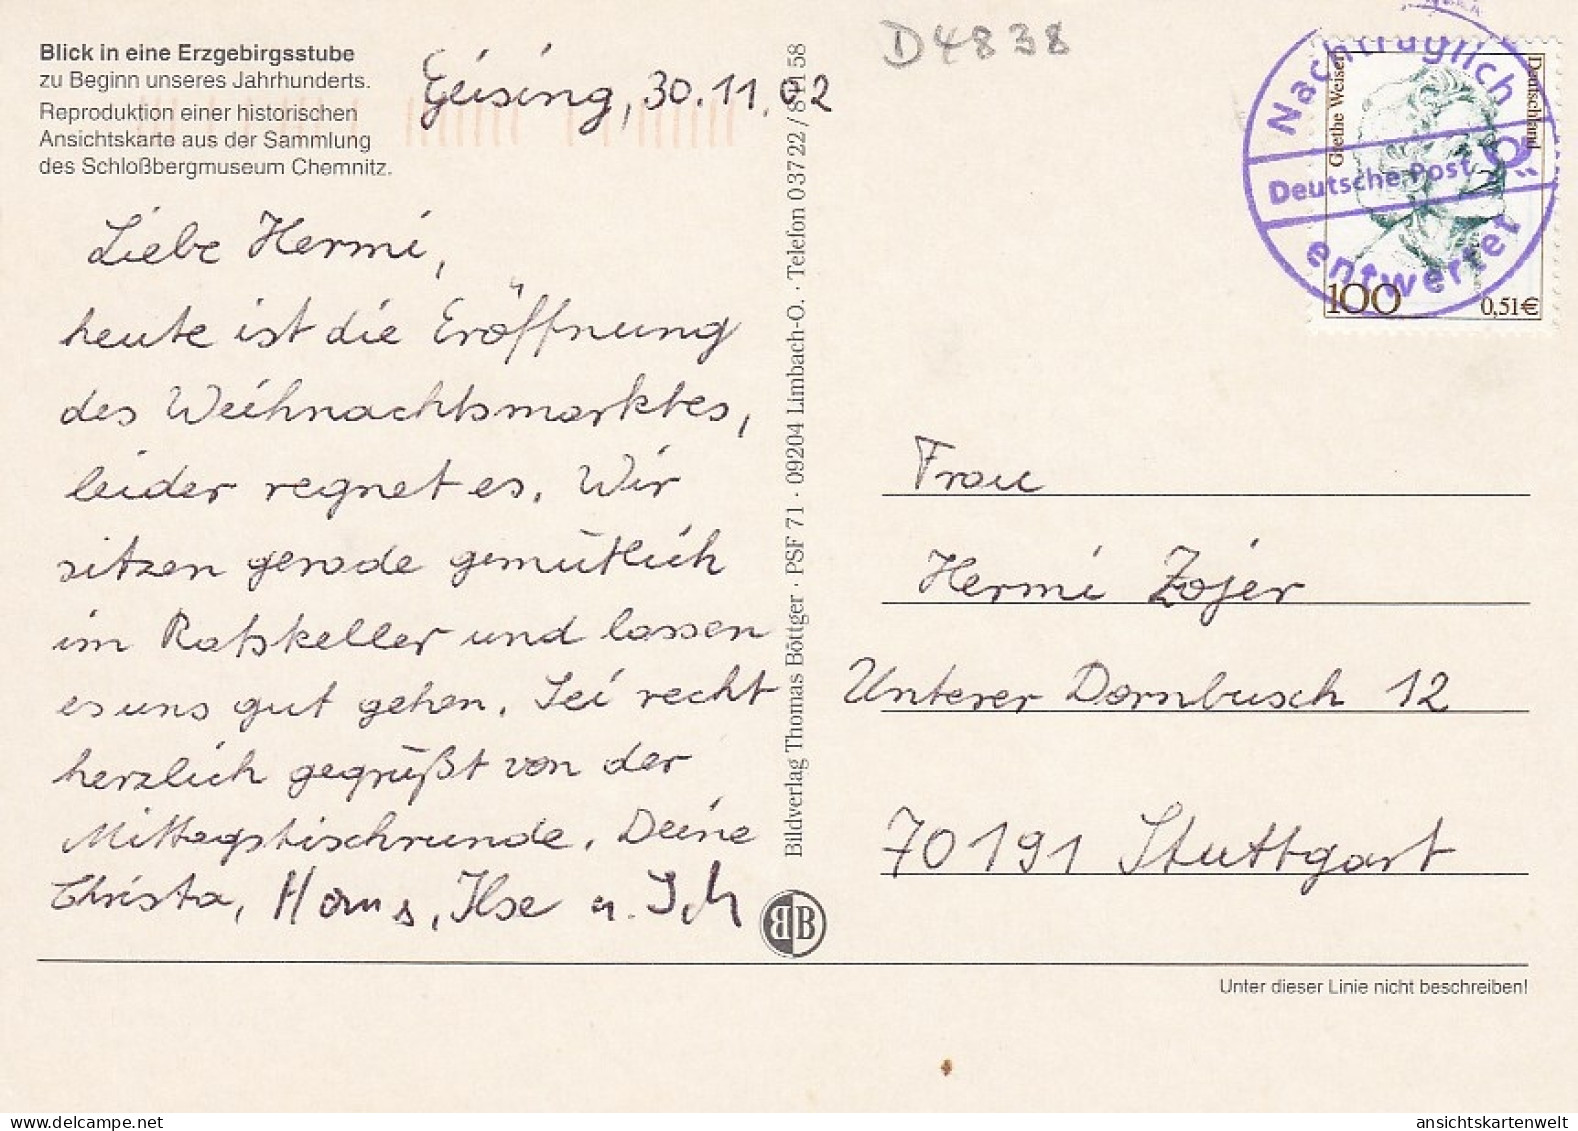 Blick in eine Erzgebirgsstube
zu Beginn unseres Jahrhunderts.
Reproduktion einer historischen
Ansichtskarte aus der Sammlung
des Schloßbergmuseum Chemnitz.
Geising, 30.11.02
Liebe Hermi,
heute ist die Eröffnung
des Weihnachtsmarktes,
leider regnet es. Wir
sitzen gerade gemütlich
im Ratskeller und lassen
es uns gut gehen. Sei recht
herzlich gegrüßt von der
Mittagstischrunde. Deine
Christa, Hans, Ilse u.
Bildverlag Thomas Böttger · PSF 71 · 09204 Limbach-O. · Telefon 03722/
BB
D4838
Nachträglich
Deutsche Post
entwertet
Grethe Weiser
Deutschland
100
0,51€
Frau
Hermi Zojer
Unterer Dornbusch 12
70191 Stuttgart
Unter dieser Linie nicht beschreiben!
ansichtskartenwelt